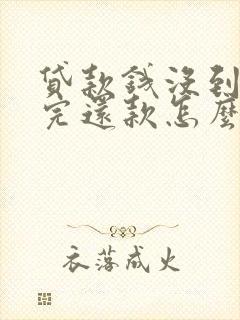 贷款钱没到
完还款怎麽
衣落成火